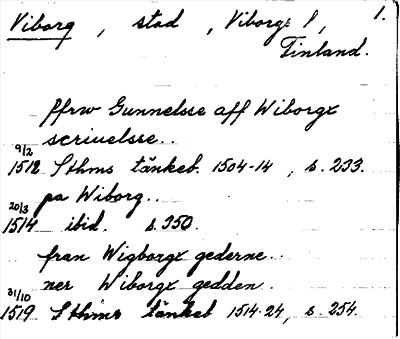 Viborg, stad, Viborgs l, 1.
Finland.
ffrw Gunnelsse aff Wiborgx
scriuelsse..
9/2
1512 Sthms tänkeb. 1504-14, s. 233.
pa Wiborg..
20/3
1514 ibid. s. 350.
fran Wigborgx gederne..
ner Wiborgx gedden..
31/10
1519 Sthms tänkeb 1514-24, s. 254.